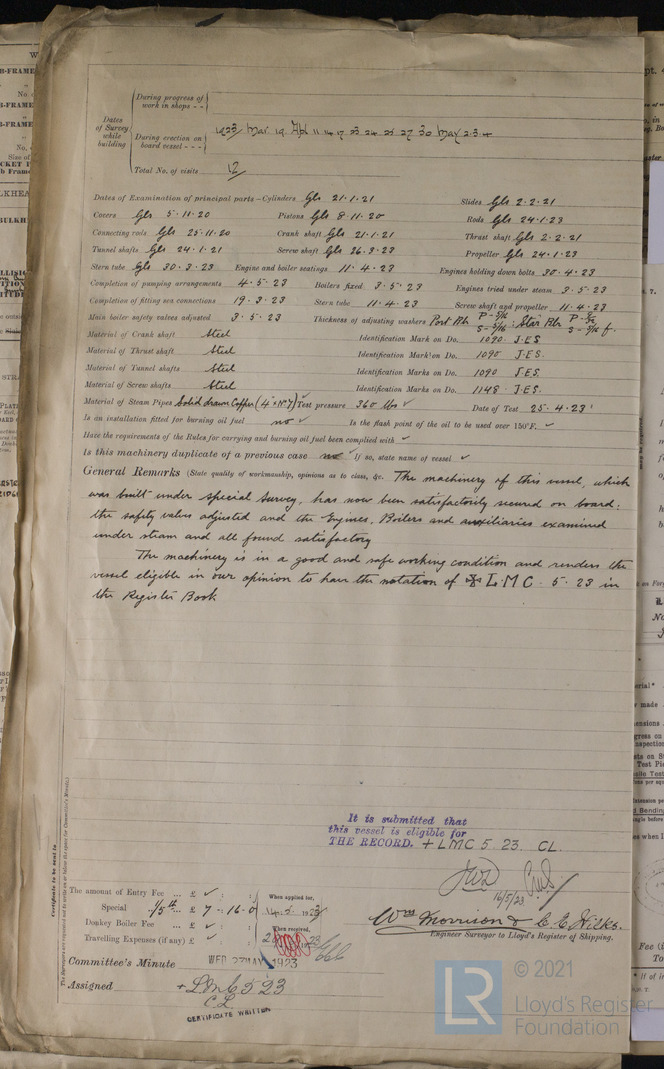 During progress of
work in shops - -
Dates
of Survey
while
building
During erection on
board vessel - - -
1923 Mar 19. Apl 11 14 17 23 24 25 27 30 May 2.3.4
Total No. of visits 12
Dates of Examination of principal parts—Cylinders Gls 21.1.21 Slides Gls 2.2.21
Covers Gls 5.11.20 Pistons Gls 8.11.20 Rods Gls 24.1.23
Connecting rods Gls 25.11.20 Crank shaft Gls 21.1.21 Thrust shaft Gls 2.2.21
Tunnel shafts Gls 24.1.21 Screw shaft Gls 26.3.23 Propeller Gls 24.1.23
Stern tube Gls 30.3.23 Engine and boiler seatings 11.4.23 Engines holding down bolts 30.4.23
Completion of pumping arrangements 4.5.23 Boilers fixed 3.5.23 Engines tried under steam 3.5.23
Completion of fitting sea connections 19.3.23 Stern tube 11.4.23 Screw shaft and propeller 11.4.23
Main boiler safety valves adjusted 3.5.23 Thickness of adjusting washers Port Blr P - 5/16 S - 5/16 : Star Blr
Material of Crank shaft Steel Identification Mark on Do. 1090 J.E.S
Material of Thrust shaft Steel Identification Mark on Do. 1090 J.E.S.
Material of Tunnel shafts Steel Identification Marks on Do. 1090 J.E.S
Material of Screw shafts Steel Identification Marks on Do. 1148 J.E.S.
Material of Steam Pipes Solid drawn Copper (4" × No 7) Test pressure 360 lbs ✓ Date of Test 25.4.23
Is an installation fitted for burning oil fuel no ✓ Is the flash point of the oil to be used over 150°F. ✓
Have the requirements of the Rules for carrying and burning oil fuel been complied with ✓
Is this machinery duplicate of a previous case no ✓ If so, state name of vessel ✓
General Remarks (State quality of workmanship, opinions as to class, &c. The machinery of this vessel, which
was built under special survey, has now been satisfactorily secured on board:
the safety valves adjusted and the Engines, Boilers and auxiliaries examined
under steam and all found satisfactory
The machinery is in a good and safe working condition and renders the
vessel eligible in our opinion to have the notation of ✠ L.M.C. 5.23 in
the Register Book
It is submitted that
this vessel is eligible for
THE RECORD. + LMC 5.23. CL.
16/5/23
Certificate to be sent to
The amount of Entry Fee ... £ ✓ : : When applied for,
Special 1/5th ... £ 7 : 16.0 14.5.1923
Donkey Boiler Fee ... £ ✓ : : When received,
Travelling Expenses (if any) £ ✓ : :
Wm Morrison & C. E. Nilks.
Engineer Surveyor to Lloyd's Register of Shipping.
Committee's Minute WED 23 MAY 1923
Assigned + L.M.C 5 23
C.L.
CERTIFICATE WRITTEN
LR
© 2021
Lloyd's Register
Foundation